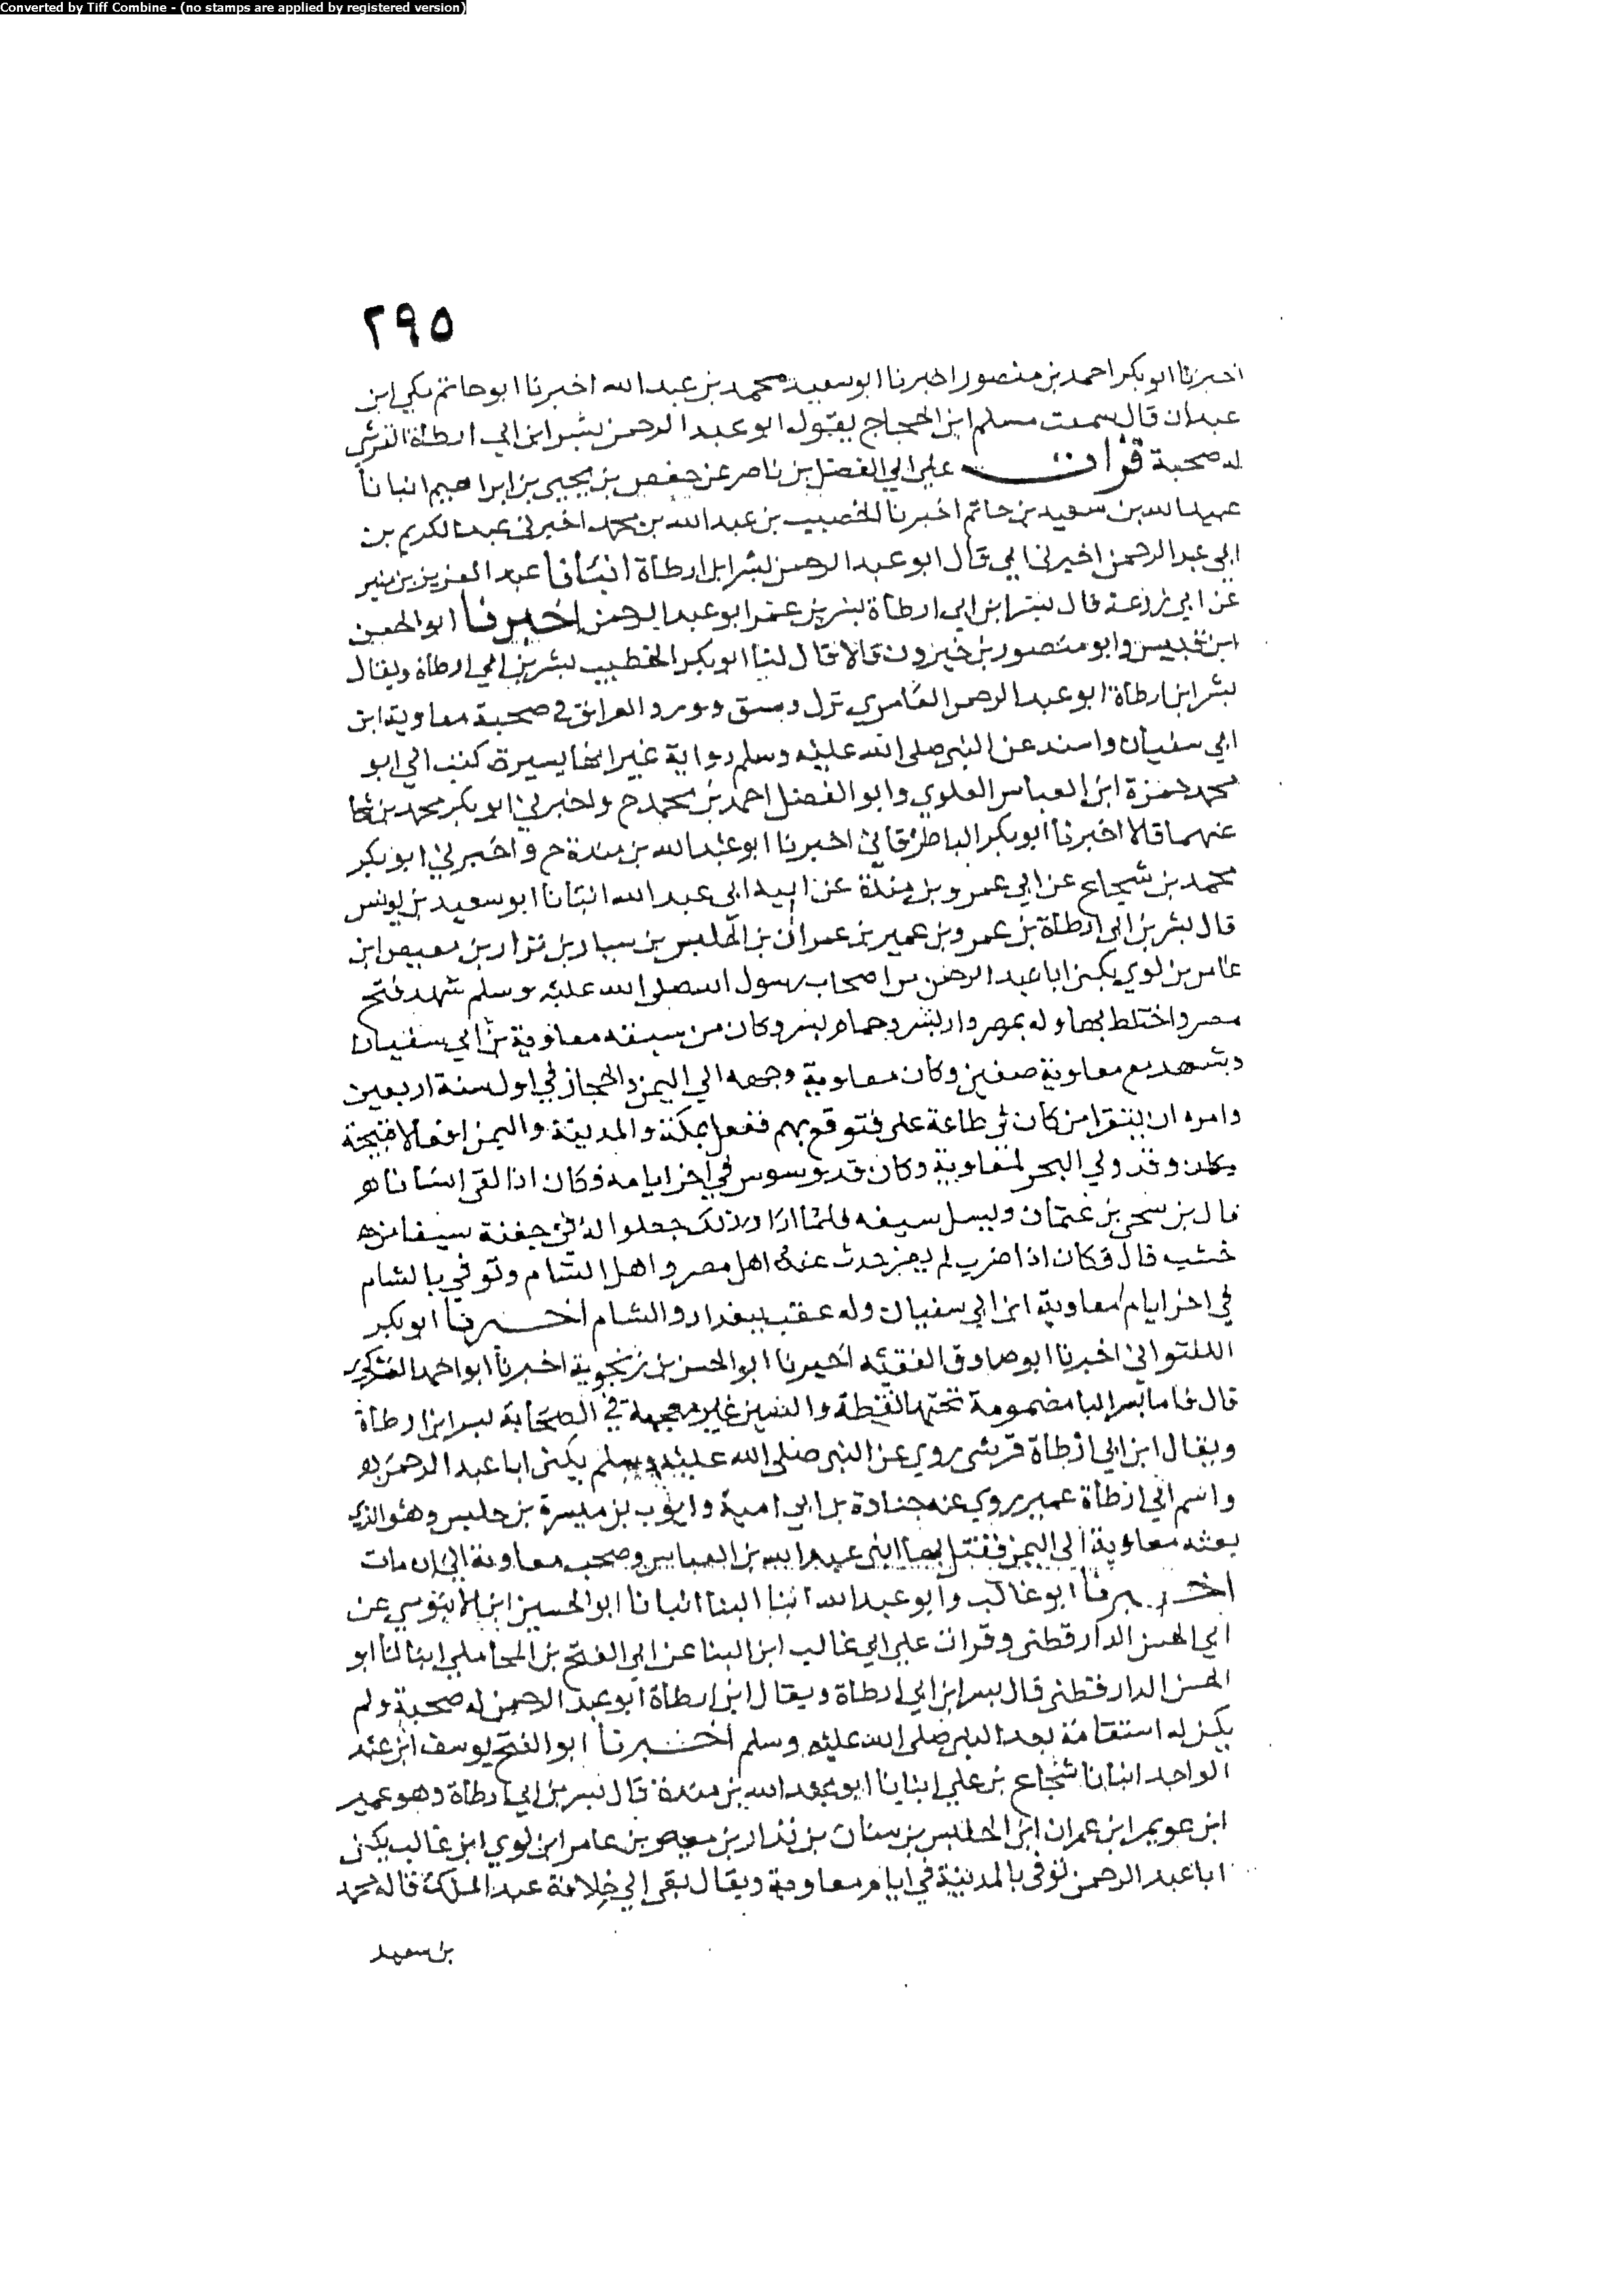 Converted by Tiff Combine - (no stamps are applied by registered version)
٢٩٥
اخبرنا ابو بكر احمد بن منصور اخبرنا ابو سعيد محمد بن عبد الله اخبرنا ابو حاتم مكي ابن
عبدان قال سمعت مسلم ابن الحجاج يقول ابو عبد الرحمن بشر ابن ابي ارطاة القرشي
له صحبة قرات على ابي الفضل بن ناصر عن جعفر بن يحيى بن ابراهيم انبانا
عبيد الله بن سعيد بن حاتم اخبرنا الخصيب بن عبد الله بن محمد اخبرني عبد الكريم بن
ابي عبد الرحمن اخبرني ابي قال ابو عبد الرحمن بشر ابن ارطاة انبانا عبد العزيز بن منير
عن ابي زرعة قال بشر ابن ابي ارطاة بشر بن عمر ابو عبد الرحمن اخبرنا ابو الحسن
ابن قبيس وابو منصور بن خيرون قالا قال لنا ابو بكر الخطيب بشر بن ابي ارطاة ويقال
بشر ابن ارطاة ابو عبد الرحمن العامري نزل دمشق وورد العراق في صحبة معاوية ابن
ابي سفيان واسند عن النبي صلى الله عليه وسلم رواية غير انها يسيرة كتب الي ابو
محمد حمزة ابن العباس العلوي وابو الفضل احمد بن محمد ح واخبرني ابو بكر محمد بن شجا
عنهما قالا اخبرنا ابو بكر الباطرقاني اخبرنا ابو عبد الله بن مندة ح واخبرني ابو بكر
محمد بن شجاع عن ابي عمرو بن مندة عن ابيه ابي عبد الله انبانا ابو سعيد بن يونس
قال بشر بن ابي ارطاة بن عمرو بن عمير بن عمران بن الحليس بن سيار بن نزار بن معيص ابن
عامر بن لوي يكنى ابا عبد الرحمن من اصحاب رسول الله صلى الله عليه وسلم شهد فتح
مصر واختلط بها وله بمصر دار بشر وحمام بسر وكان من شيعة معاوية بن ابي سفيان
وشهد مع معاوية صفين وكان معاوية وجهه الي اليمن والحجاز في اول سنة اربعين
وامره ان يتقرا من كان في طاعة علي فيوقع بهم ففعل بمكة والمدينة واليمن افعالا قبيحة
وقد ولي البحر لمعاوية وكان قد وسوس في اخر ايامه فكان اذا لقي انسانا هو
قال بن شحى بن عثمان ويسل سيفه فلما راوا ذلك جعلوا له في جفنة سيفا من
خشب قال فكان اذا ضرب لم يضر حدث عنه اهل مصر واهل الشام وتوفي بالشام
في اخر ايام معاوية ابن ابي سفيان وله عقب ببغداد والشام اخبرنا ابو بكر
اللفتواني اخبرنا ابو صادق الفقيه اخبرنا ابو الحسن بن زنجوية اخبرنا ابو احمد العسكري
قال فاما بسر البا مضمومة تحتها نقطة والسين غير معجمة في الصحابة بسر ابن ارطاة
ويقال ابن ابي ارطاة قرشي روي عن النبي صلى الله عليه وسلم يكنى ابا عبد الرحمن
واسم ابي ارطاة عمير روي عنه جنادة بن ابي امية وايوب بن ميسرة بن حلبس وهو الذي
بعثه معاوية الي اليمن فقتل بها ابني عبيد الله بن العباس وصحب معاوية الي ان مات
اخبرنا ابو غالب وابو عبد الله ابنا البنا انبانا ابو الحسين ابن الابنوسي عن
ابي الحسن الدارقطني وقرات علي ابي غالب ابن البنا عن ابي الفتح بن المحاملي انبانا ابو
الحسن الدارقطني قال بسر ابن ابي ارطاة ويقال ابن ارطاة ابو عبد الرحمن له صحبة ولم
يكن له استقامة بعد النبي صلى الله عليه وسلم اخبرنا ابو الفتح يوسف ابن عبد
الواحد انبانا شجاع بن علي انبانا ابو عبد الله بن مندة قال بسر بن ابي ارطاة وهو عمير
ابن عويمر ابن عمران ابن الحليس بن سنان بن نزار بن معيص بن عامر ابن لوي ابن غالب يكنى
ابا عبد الرحمن توفى بالمدينة في ايام معاوية ويقال بقى الي خلافة عبد الملك قاله محمد
بن سعيد